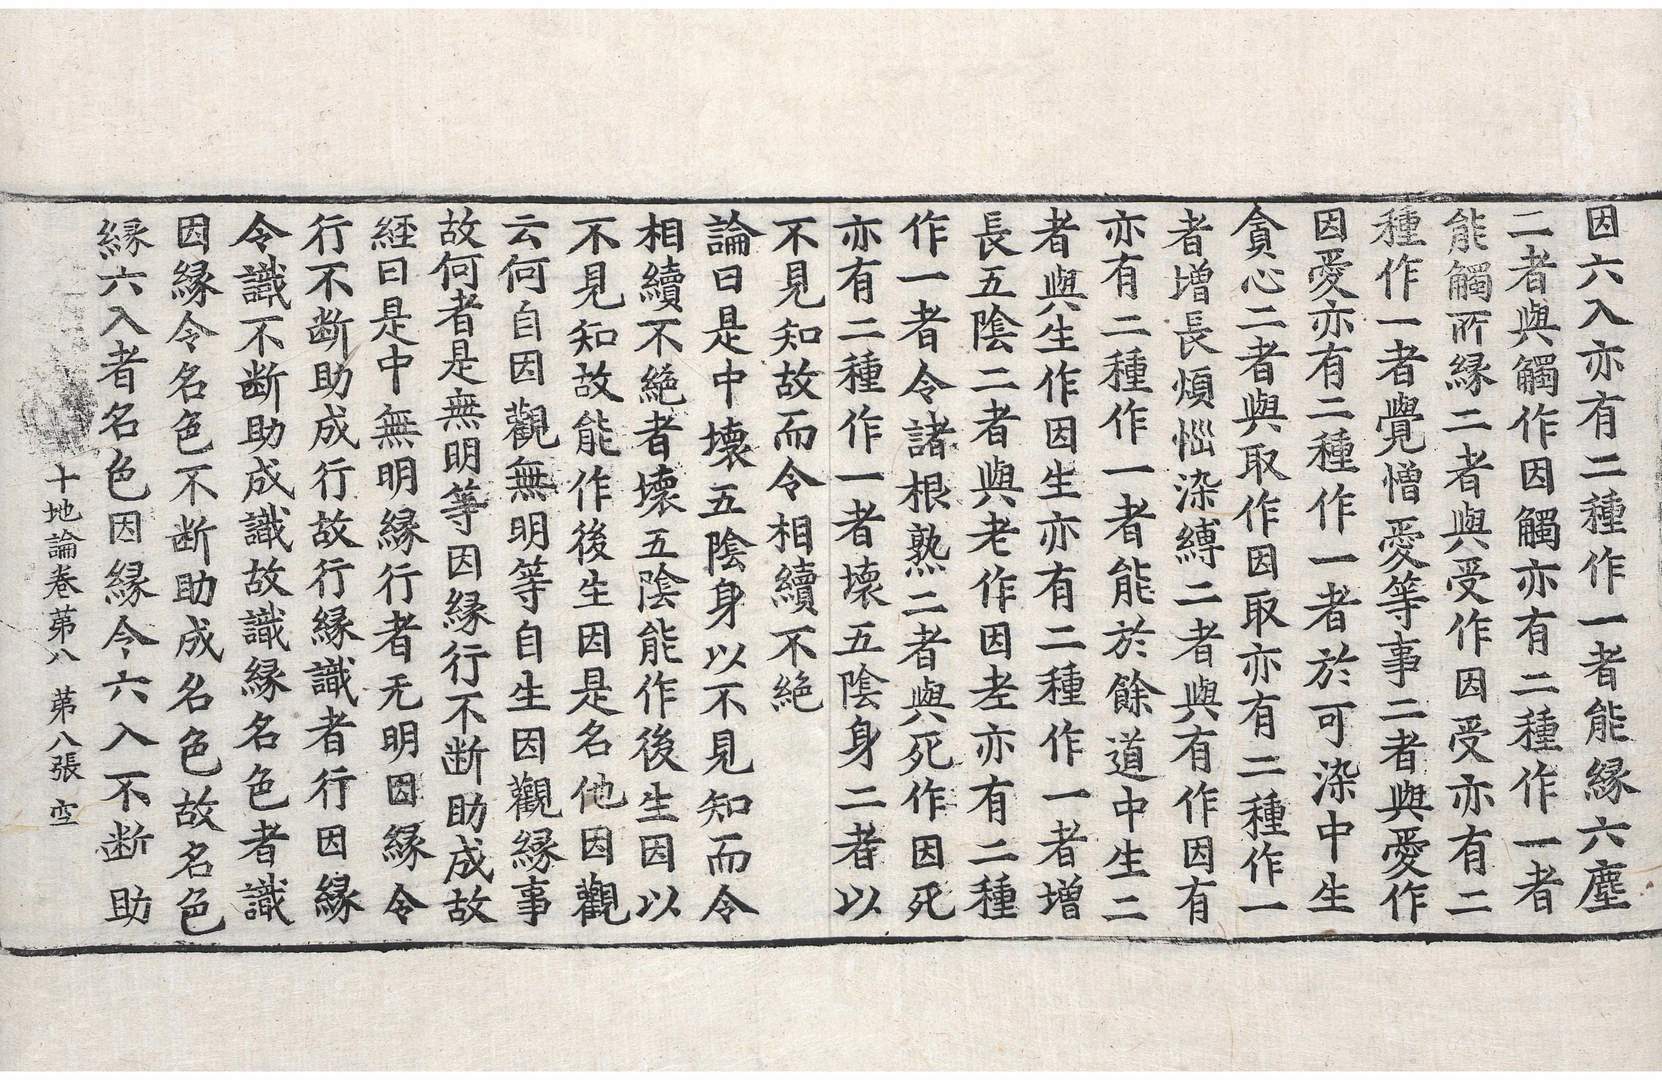 因六入亦有二種作一者能縁六塵
二者與觸作因觸亦有二種作一者
能觸所縁二者與受作因受亦有二
種作一者覺憎愛等事二者與愛作
因愛亦有二種作一者於可染中生
貪心二者與取作因取亦有二種作一
者增長煩惱染縛二者與有作因有
亦有二種作一者能於餘道中生二
者與生作因生亦有二種作一者增
長五陰二者與老作因老亦有二種
作一者令諸根熟二者與死作因死
亦有二種作一者壞五陰身二者以
不見知故而令相續不絶
論曰是中壞五陰身以不見知而令
相續不絶者壞五陰能作後生因以
不見知故能作後生因是名他因觀
云何自因觀無明等自生因觀縁事
故何者是無明等因縁行不断助成故
經曰是中無明縁行者无明因縁令
行不断助成行故行縁識者行因縁
令識不断助成識故識縁名色者識
因縁令名色不断助成名色故名色
縁六入者名色因縁令六入不断助
十地論卷苐八 苐八張 空